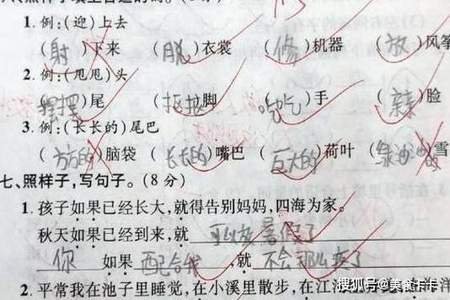 1. 例:(迎)上去
(射)下来 (脱)衣裳 (修)机器 (放)风筝
2. 例:(甩甩)头
(摆摆)尾 (抬抬)脚 (吹吹)手 (亲)脸
3. 例:(长长的)尾巴
(方方的)脑袋 (长长的)嘴巴 (巨大的)荷叶 ( )雪
七、照样子,写句子。(8 分)
1. 孩子如果已经长大,就得告别妈妈,四海为家。
秋天如果已经到来,就 可以放暑假了
你 如果 配合我 ,就 不会那么疼了
2. 平常我在池子里睡觉,在小溪里散步,在江
搜狐号@美食卡卡